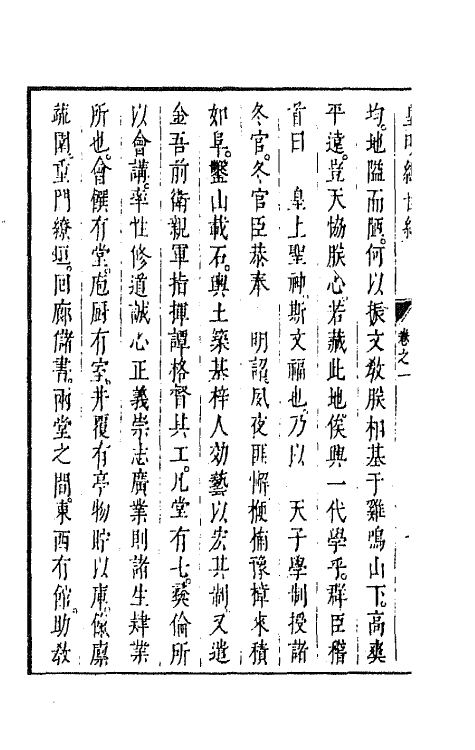 皇明經世編
卷之一
均。地隘而陋。何以振文敎朕相基于雞鳴山下。高爽
平遠。豈天協朕心。若藏此地俟興一代學乎。群臣稽
首曰　皇上聖神。斯文福也。乃以　天子學制授諸
冬官。冬官臣恭奉　明詔。夙夜匪懈梗楠豫樟來積
如阜。鑿山載石。輿土築基梓人効藝以宏其制。又遣
金吾前衛親軍指揮譚格督其工。凡堂有七。彜倫所
以會講。率性修道誠心正義崇志廣業則諸生肄業
所也。會饌有堂。庖厨有室。井覆有亭物貯以庫。傢廪
蔬圃。重門繚垣。回廊儲書。兩堂之間。東西有館。助敎